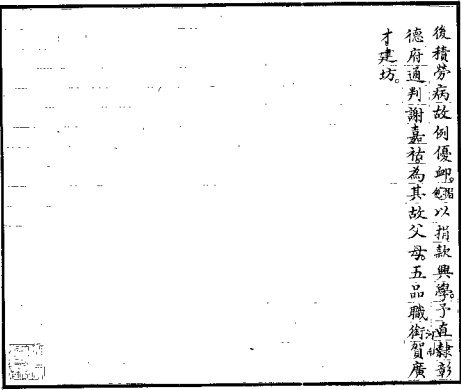 後積勞病故例優卹。包摺以捐款興學。予直隸彰
德府通判謝嘉祜為其故父母。五品職銜賀廣
才建坊。